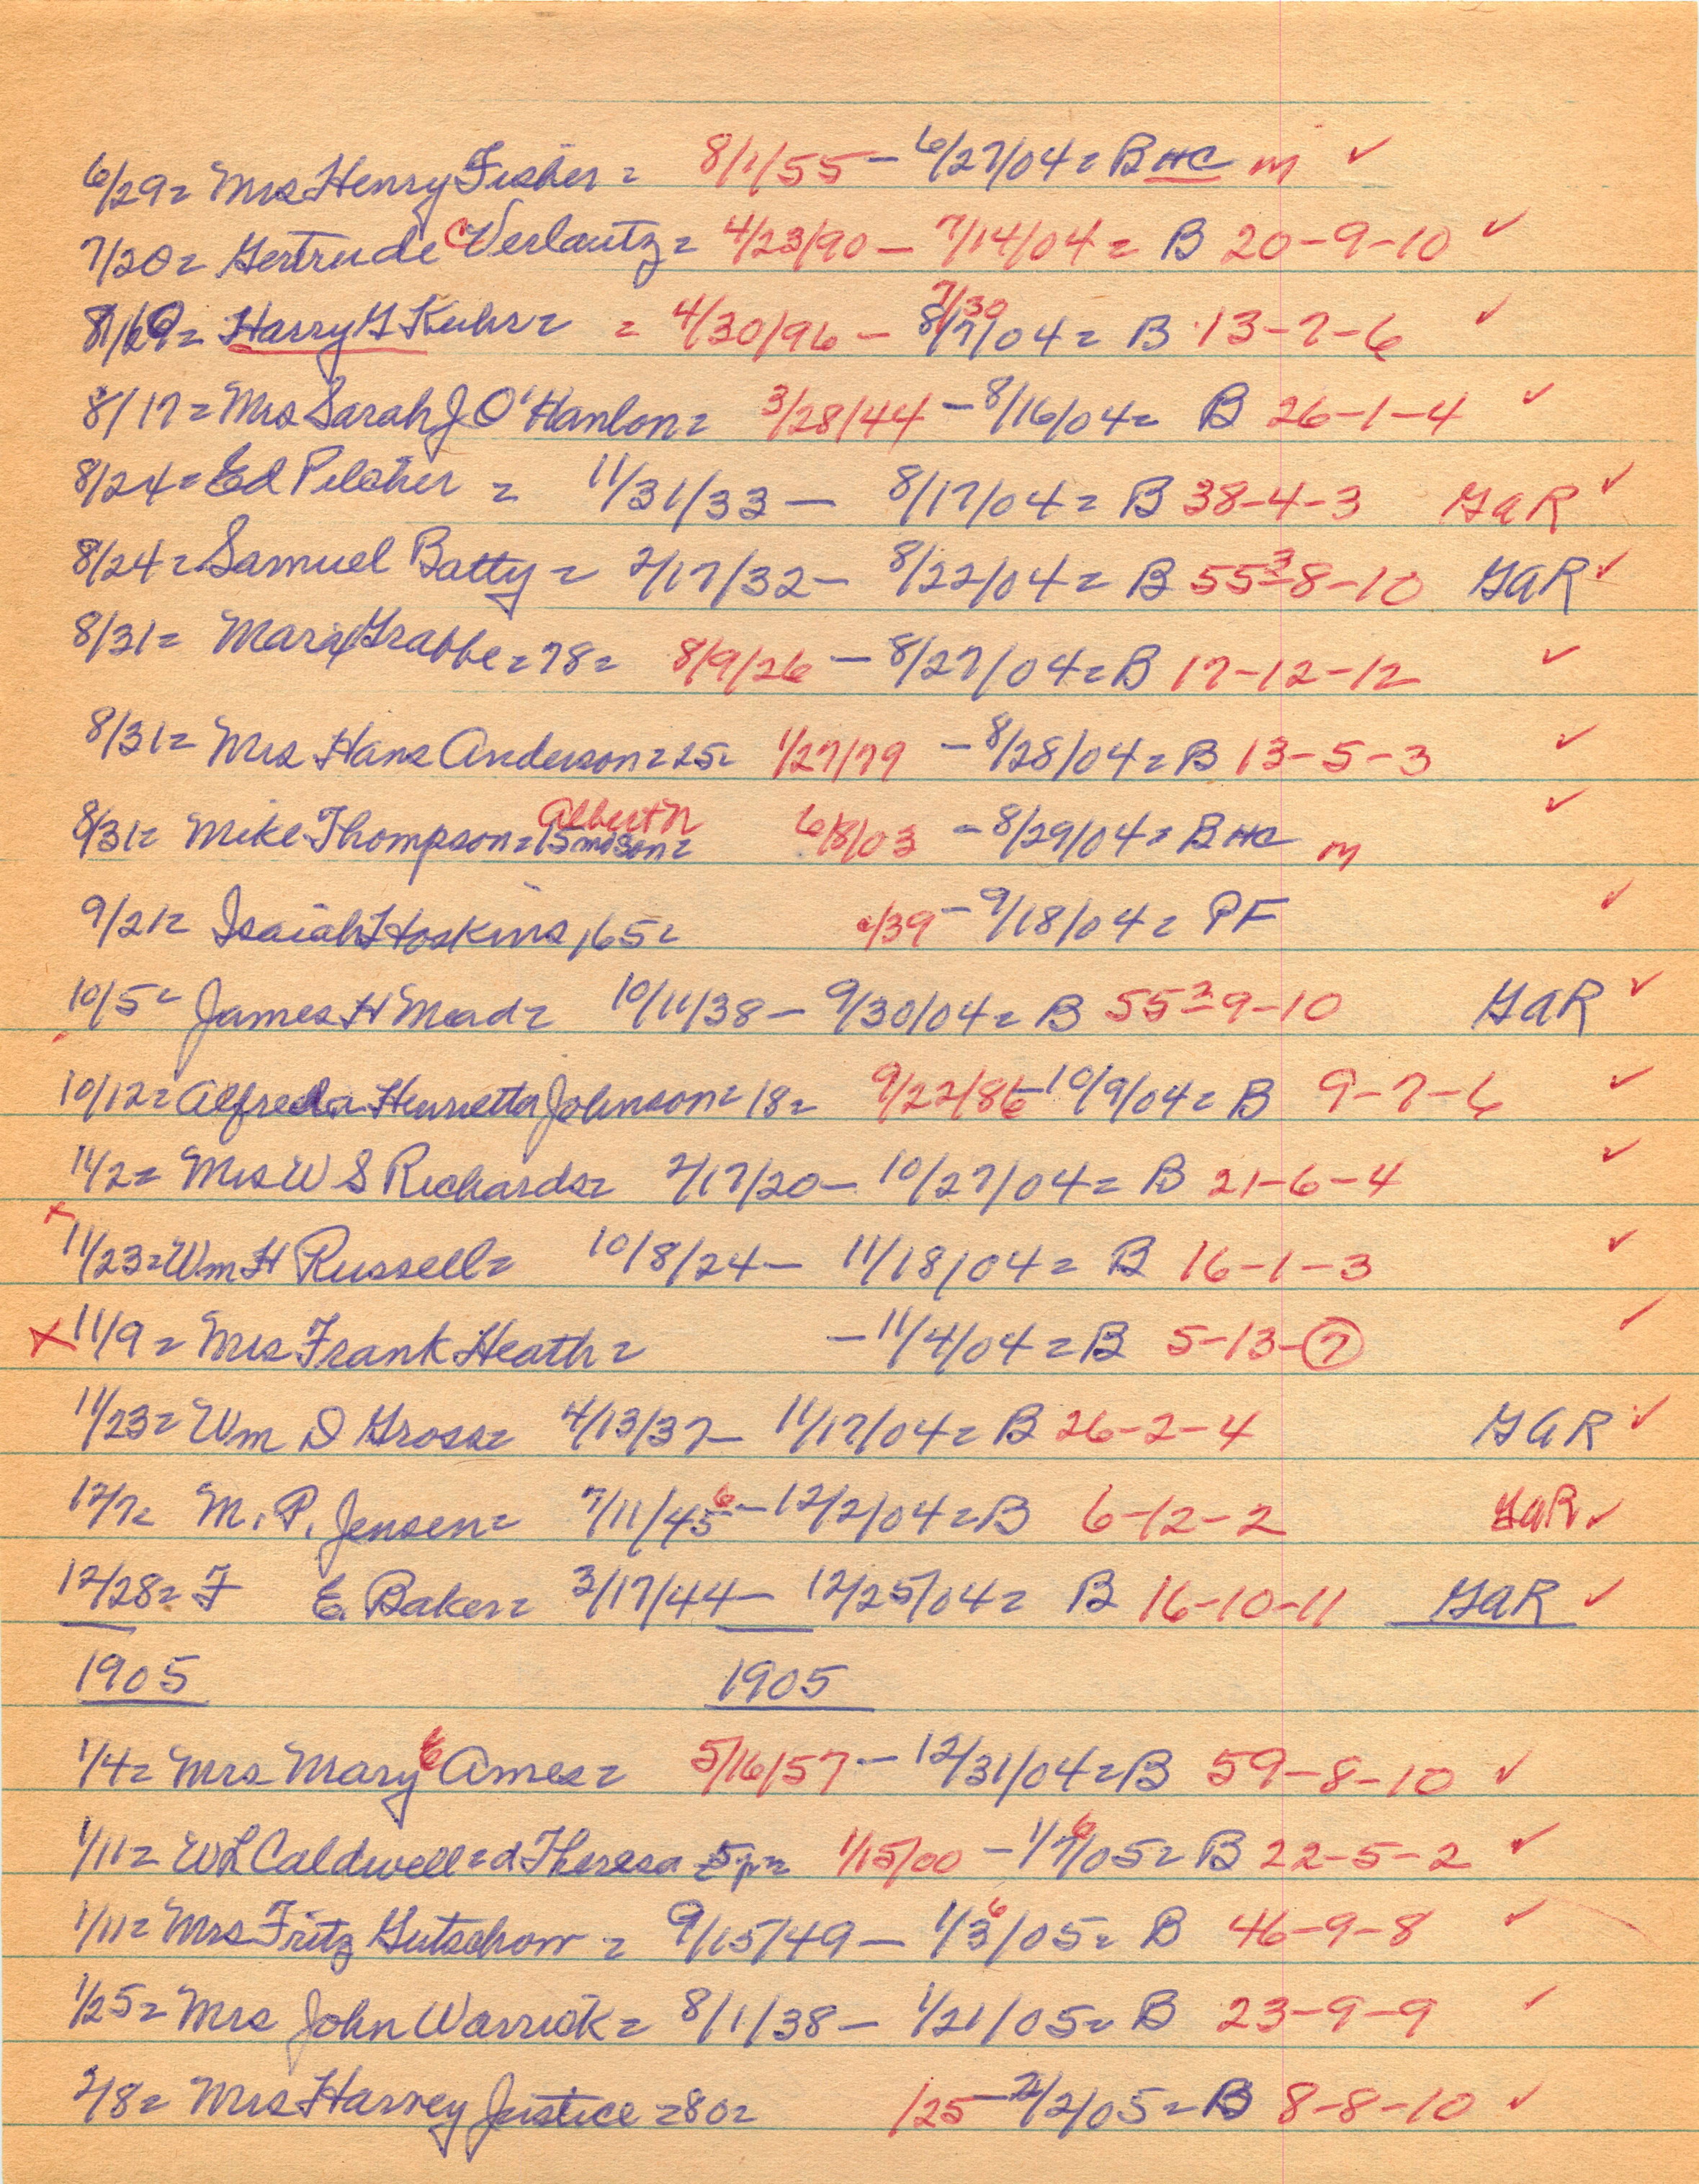 6/29= Mrs Henry Fisher = 8/1/55 - 6/27/04 = B HC m ✓
7/20= Gertrude C Verlautz = 4/23/90 - 7/14/04 = B 20-9-10 ✓
Harry G Kuhr = = 4/30/96 - 8/7/04 = B 13-7-6 ✓
7/30
8/17= Mrs Sarah J O'Hanlon = 3/28/44 - 8/16/04 = B 26-1-4 ✓
8/24= Ed Pilcher = 11/31/33 - 8/17/04 = B 38-4-3 GAR ✓
8/24= Samuel Batty = 2/17/32 - 8/22/04 = B 55²-8-10 GAR ✓
8/31= Mary Grabbe = 78 = 8/9/26 - 8/27/04 = B 17-12-12 ✓
8/31= Mrs Hans Anderson = 25 = 1/27/79 - 8/28/04 = B 13-5-3 ✓
Albert N
8/31= Mike Thompson = 15 mo son = 6/8/03 - 8/29/04 = B HC m ✓
9/21= Isaiah Hoskins, 65 = /39 - 9/18/04 = PF ✓
10/5= James H Mead = 10/11/38 - 9/30/04 = B 55²-9-10 GAR ✓
10/12= Alfreda Henrietta Johnson = 18 = 9/22/86 - 10/9/04 = B 9-7-6 ✓
11/2= Mrs W S Richards = 2/17/20 - 10/27/04 = B 21-6-4 ✓
x 11/23= Wm H Russell = 10/8/24 - 11/18/04 = B 16-1-3 ✓
x 11/9 = Mrs Frank Heath = - 11/4/04 = B 5-13-7 ✓
11/23= Wm D Gross = 4/13/37 - 11/17/04 = B 26-2-4 GAR ✓
12/7= M. P. Jensen = 7/11/45 6 - 12/2/04 = B 6-12-2 GAR ✓
12/28= F E. Baker = 3/17/44 - 12/25/04 = B 16-10-11 GAR ✓
1905 1905
1/4= Mrs Mary E Ames = 5/16/57 - 12/31/04 = B 59-8-10 ✓
1/11= W L Caldwell = d Theresa 5 yr = 1/15/00 - 1/7 6/05 = B 22-5-2 ✓
1/11= Mrs Fritz Gutschow = 9/15/49 - 1/3 6/05 = B 46-9-8 ✓
1/25= Mrs John Warrick = 8/1/38 - 1/21/05 = B 23-9-9 ✓
2/8= Mrs Harvey Justice = 80 = /25 - 2/2/05 = B 8-8-10 ✓